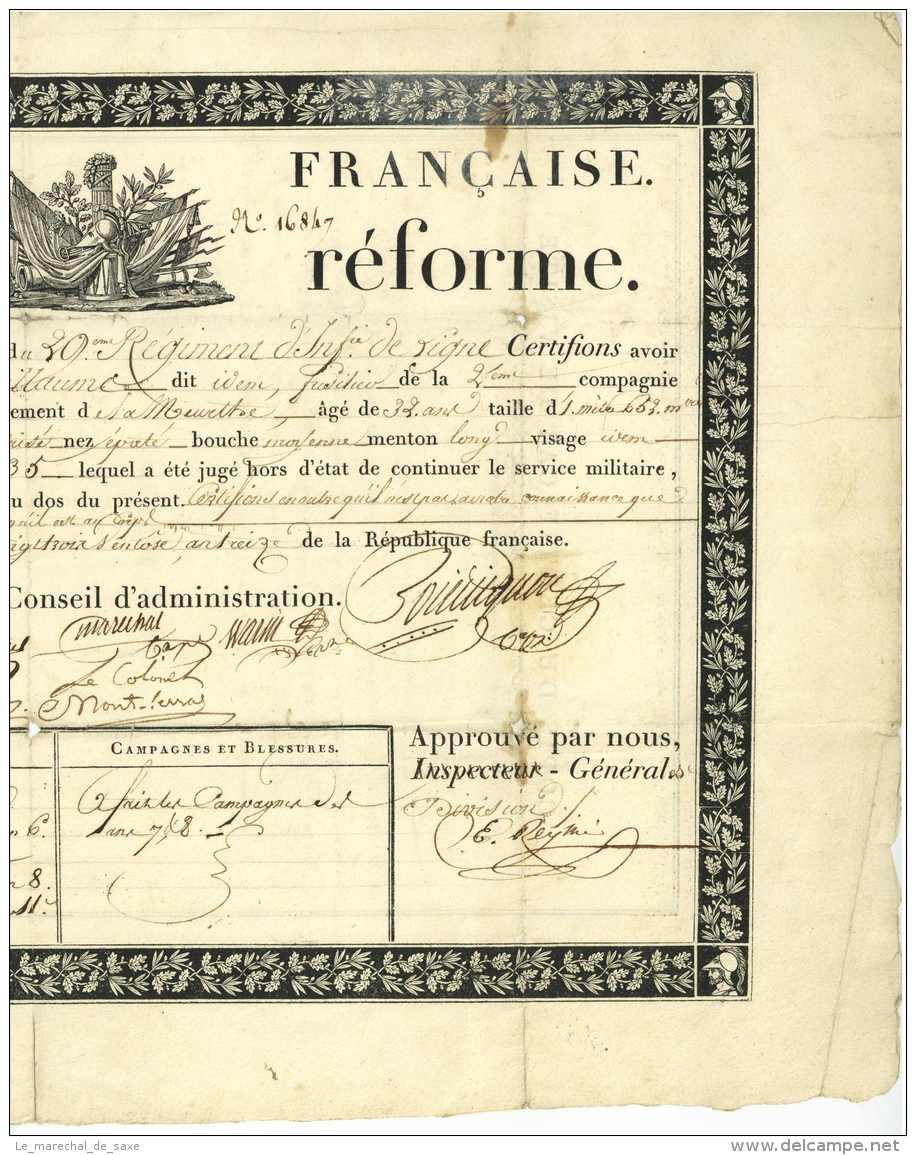 FRANÇAISE.
No. 16847
réforme.
du 29.eme Régiment d'Inf.ie de Ligne Certifions avoir
llaume dit idem, fusilier de la 2.eme compagnie
ement d la Meurthe, âgé de 32 ans taille d'1 mètre 652 m
nez épaté bouche moyenne menton long visage idem
35 lequel a été jugé hors d'état de continuer le service militaire,
u dos du présent. Certifions en outre qu'il n'est pas à notre connaissance que
qu'il est au Corps
gt trois Ventose, an treize de la République française.
Conseil d'administration.
marechal
Cap.e
Le Colonel
Mont-serras
CAMPAGNES ET BLESSURES.
Approuvé par nous,
Inspecteur - Général
Division
A fait les Campagnes des
ans 7, 8.
n 6.
n 8.
11.
Le_marechal_de_saxe
delcampe.net